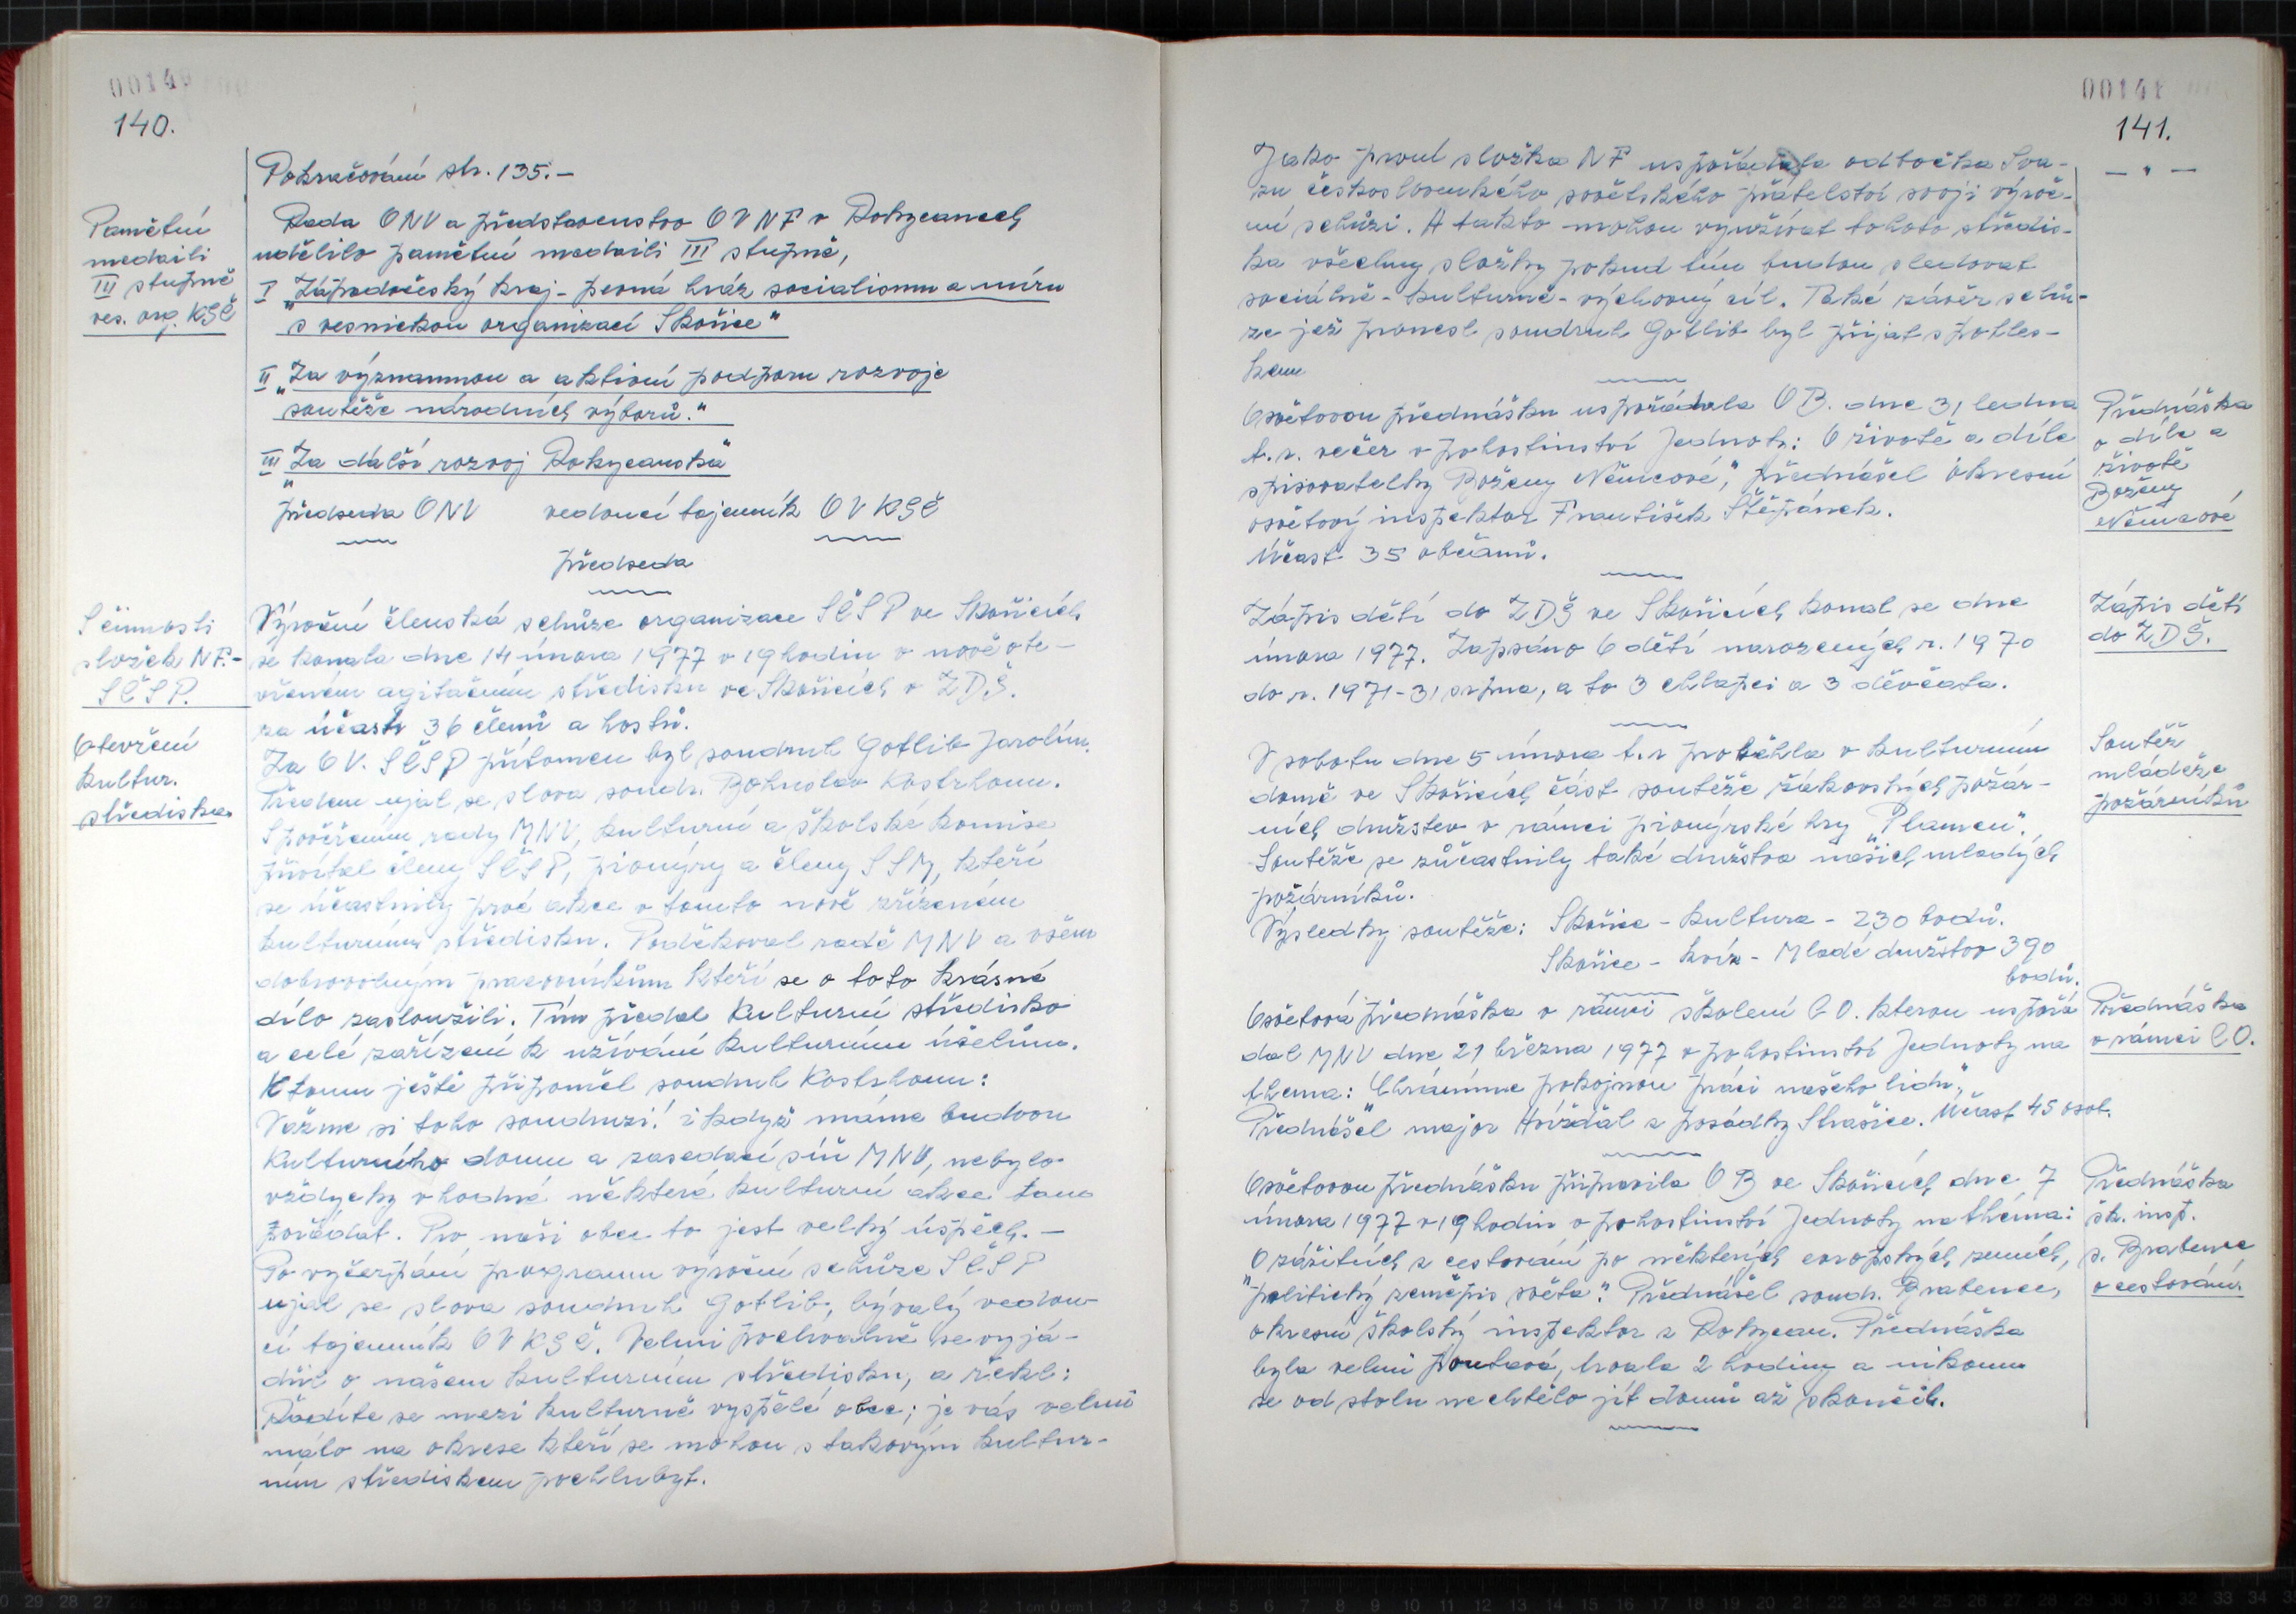 00140
140.
Pokračování str. 135.-
Pamětní
medaili
III stupně
ves. org. KSČ
Rada ONV a představenstvo OV NF v Rokycanech
udělilo pamětní medaili III stupně,
I „Západočeský kraj - pevná hráz socialismu a míru
s vesnickou organizací Skořice"
II „Za významnou a aktivní podporu rozvoje
soutěže národních výborů."
III „Za další rozvoj Rokycanska"
předseda ONV vedoucí tajemník OV KSČ
předseda
S činnosti
složek NF.-
SČSP.
Otevření
kultur.
střediska.
Výroční členská schůze organizace SČSP ve Skořicích
se konala dne 14 února 1977 v 19 hodin v nově ote-
vřeném agitačním středisku ve Skořicích v ZDŠ.
za účasti 36 členů a hostů.
Za OV. SČSP přítomen byl soudruh Gotlib Jarolím.
Předem ujal se slova soudr. Bohuslav Kostrhoun.
S pověřením rady MNV, kulturní a školské komise
přivítal členy SČSP, pionýry a členy SSM, kteří
se účastnily prvé akce v tomto nově zřízeném
kulturním středisku. Poděkoval radě MNV a všem
dobrovolným pracovníkům kteří se o toto krásné
dílo zasloužili. Tím předal kulturní středisko
a celé zařízení k užívání kulturním účelům.
K tomu ještě připoměl soudruh Kostrhoun:
Važme si toho soudruzi! i když máme budovu
Kulturního domu a zasedací síň MNV, nebylo
vždycky vhodné některé kulturní akce tam
pořádat. Pro naši obec to jest velký úspěch.-
Po vyčerpání programu výroční schůze SČSP
ujal se slova soudruh Gotlib, bývalý vedou-
cí tajemník OV KSČ. Velmi pochvalně se vyjá-
dřil o našem kulturním středisku, a řekl:
Řadíte se mezi kulturně vyspělé obce; je vás velmi
málo na okrese kteří se mohou s takovým kultur-
ním střediskem pochlubyt.
00141
141.
- " -
Jako prvul složka NF uspořádala odbočka Sva-
zu československého sovětského přátelství svoji výroč-
ní schůzi. A takto mohou využívat tohoto středis-
ka všechny složky pokud tím budou sledovat
sociálně - kulturně - výchovný cíl. Také závěr schů-
ze jež pronesl soudruh Gotlib byl přijat s potles-
kem
Osvětovou přednášku uspořádala OB. dne 31 ledna
t.r. večer v pohostinství Jednoty: O životě a díle
spisovatelky Boženy Němcové," přednášel okresní
osvětový inspektor František Štěpánek.
Účast 35 občanů.
Přednáška
o díle a
životě
Boženy
Němcové
Zápis dětí do ZDŠ ve Skořicích konal se dne
února 1977. Zapsáno 6 dětí narozených r. 1970
do r. 1971-31 srpna, a to 3 chlapci a 3 děvčata.
Zápis dětí
do ZDŠ.
V sobotu dne 5 února t.r proběhla v kulturním
domě ve Skořicích část soutěže žákovských požár-
ních družstev v rámci pionýrské hry „Plamen".
Soutěže se zůčastnily také družstva našich mladých
požárníků.
Výsledky soutěže: Skořice - kultura - 230 bodů.
Skořice - kvíz - Mladé družstvo 390
bodů.
Soutěž
mládeže
požárníků
Osvětová přednáška v rámci školení CO. kterou uspořá
dal MNV dne 21 března 1977 v pohostinství Jednoty na
thema: „Chráníme pokojnou práci našeho lidu",
Přednášel major Hvížďál z posádky Strašice. Účast 45 osob.
Přednáška
v rámci CO.
Osvětovou přednášku připravila OB ve Skořicích dne 7
února 1977 v 19 hodin v pohostinství Jednoty na théma:
O zážitcích z cestování po některých evropských zemích,
"politický zeměpis světa". Přednášel soudr. Bratence,
okresní školský inspektor z Rokycan. Přednáška
byla velmi poutavá, trvala 2 hodiny a nikomu
se od stolu nechtělo jít domů až skončil.
Přednáška
šk. insp.
s. Bratence
o cestování.